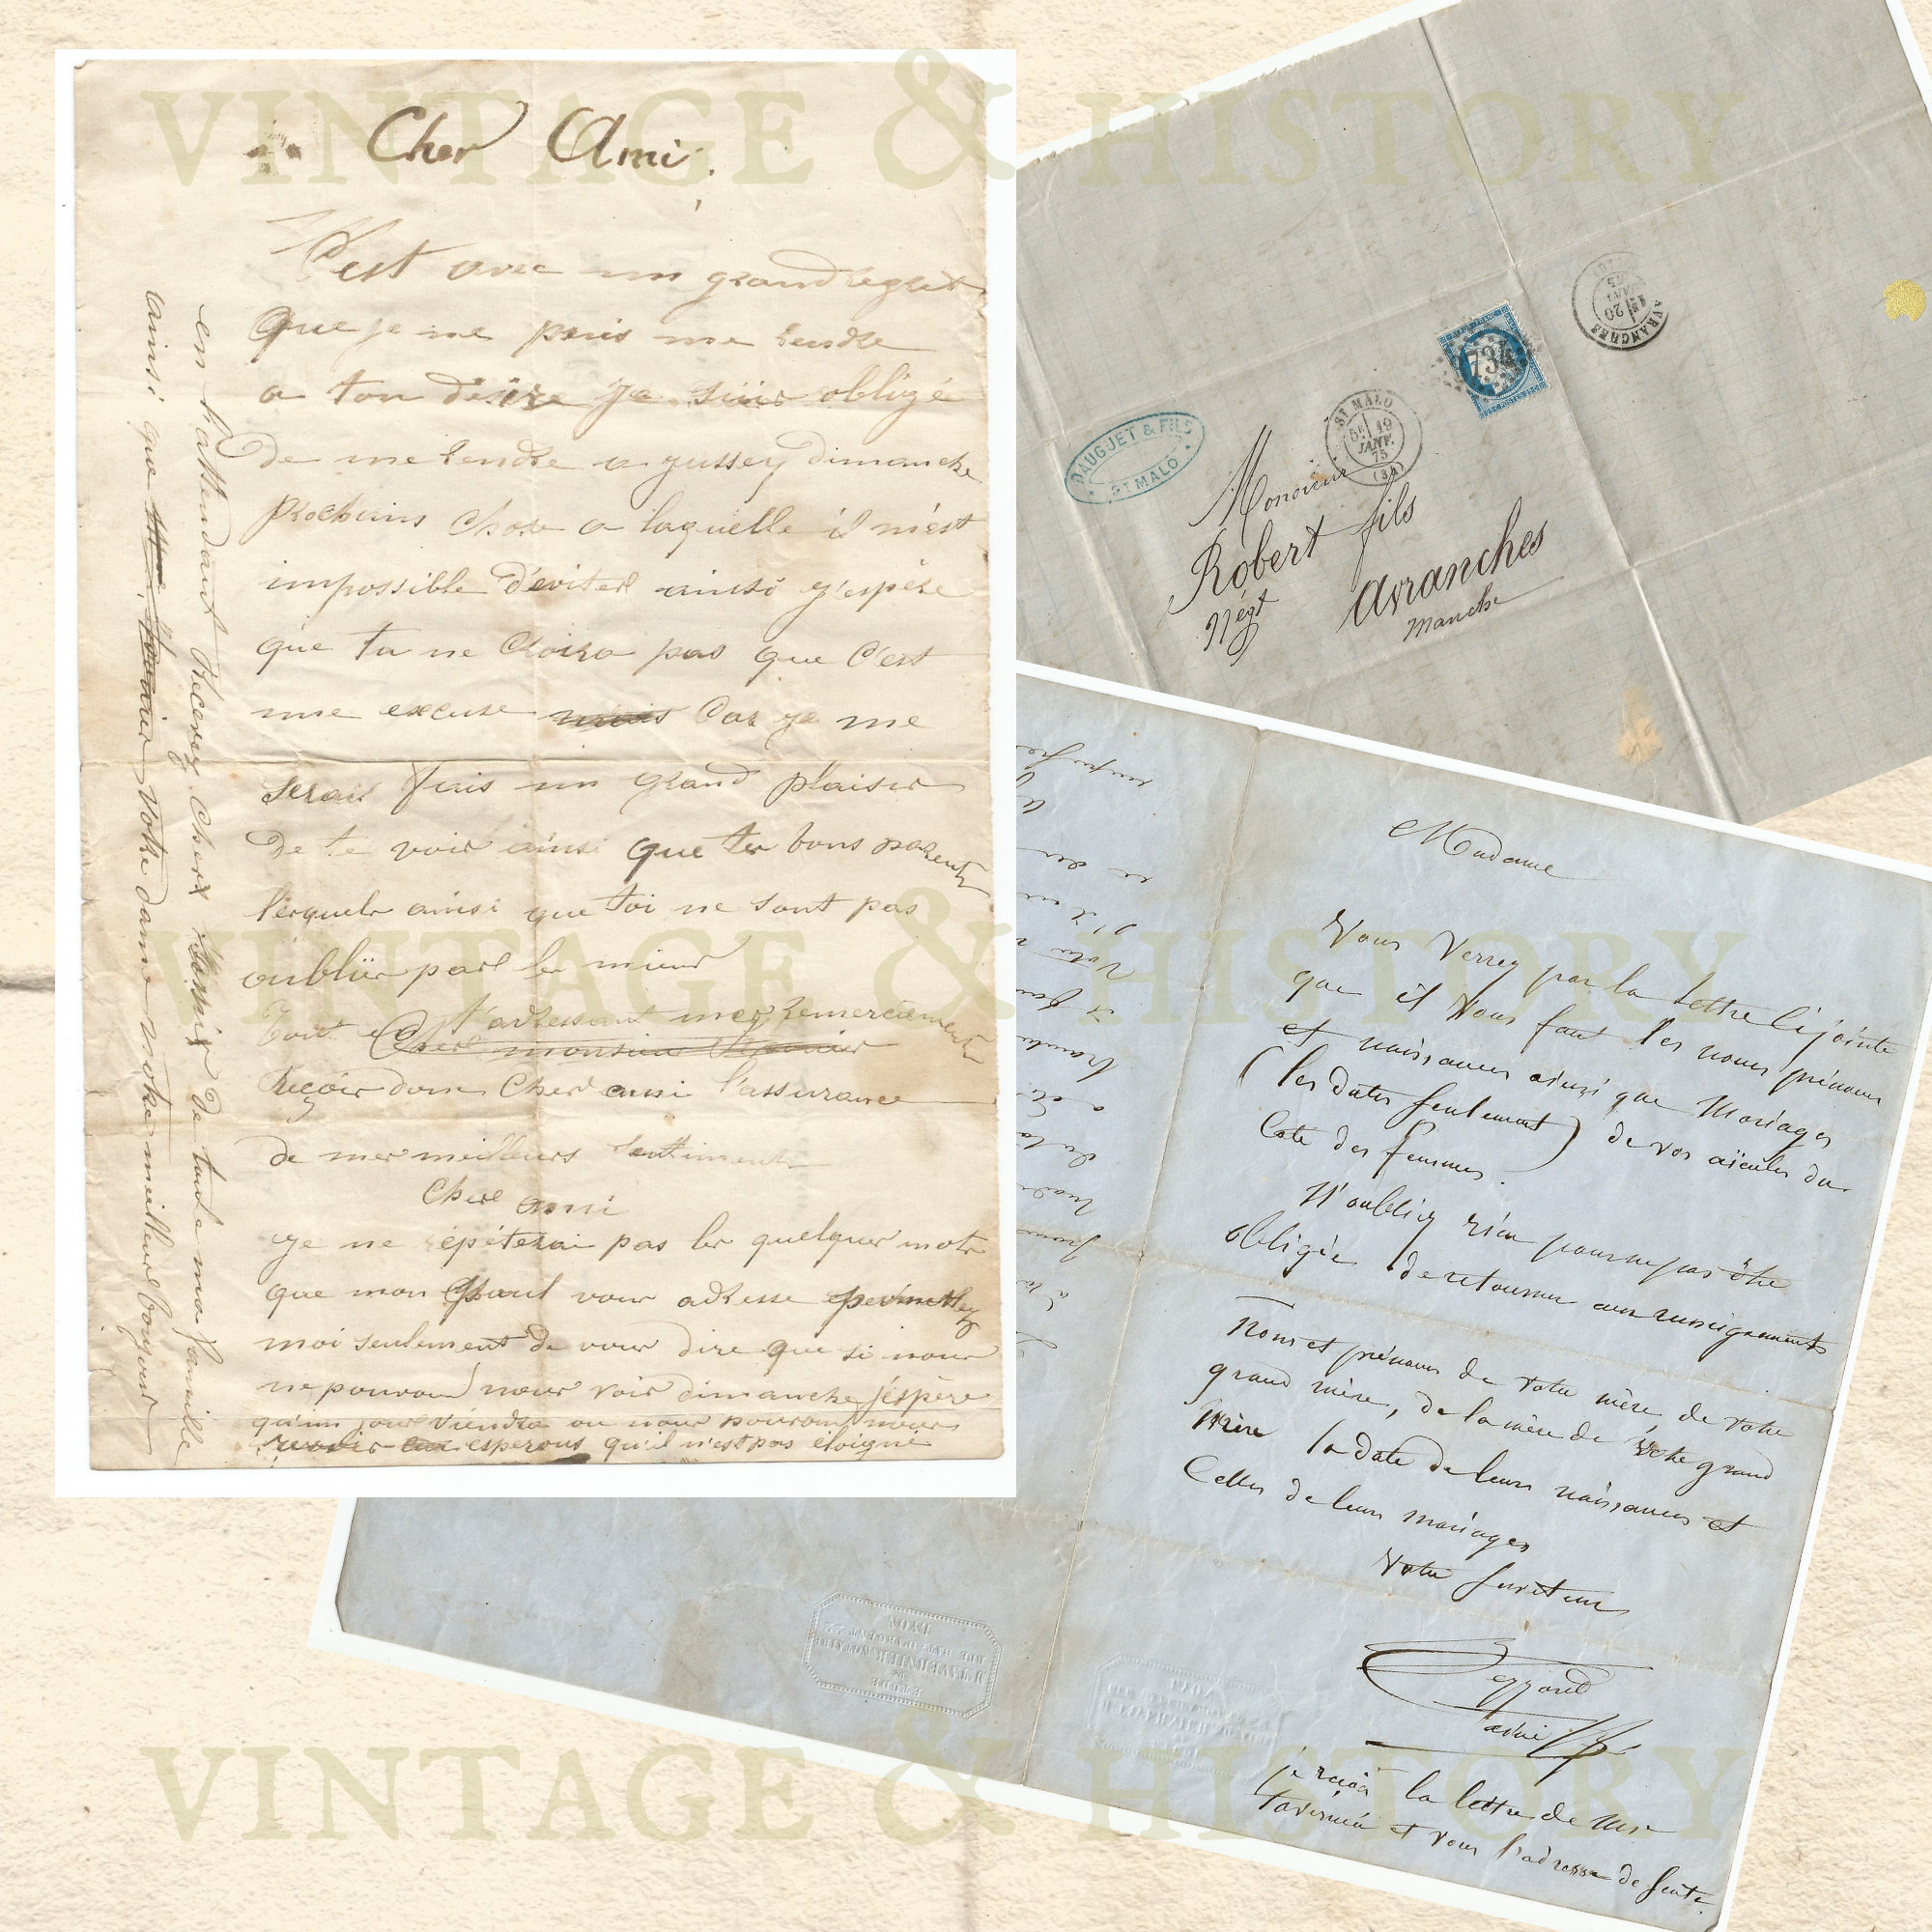 VINTAGE & HISTORY
Cher Ami
C'est avec un grand regret
Que je ne puis me rendre
a ton désire je suis obligé
De me rendre a jussey dimanche
prochains chose a laquelle il m'est
impossible d'eviter ainsi j'espère
que tu ne croira pas que c'est
une excuse car je me
serais fais un grand plaisir
De te voir ainsi que tes bons parents
lesquels ainsi que toi ne sont pas
oublier par les miens
Tout en t'adressant mes remerciements
Cher monsieur
reçois donc Cher ami l'assurance
de mes meilleurs sentiments
Cher ami
je ne répéterai pas les quelques mots
que mon Paul vous adresse permettez
moi seulement de vous dire que si nous
ne pouvons nous voir dimanche j'éspère
qu'un jour viendra ou nous pourons nous
esperons qu'il n'est pas éloigné
en attendant Recevez Cher de toute ma famille
ainsi que votre dame notre meilleur bonjour
DAUGUET & FILS
ST MALO
ST MALO
5E 19
JANV.
75
(34)
734
AVRANCHES
20
JANV
75
Monsieur
Robert fils
Négt
Avranches
Manche
VINTAGE & HISTORY
Madame
Vous Verrez par la lettre ci jointe
que il Vous faut les noms prénoms
et naissances ainsi que Mariages
(les dates seulement) de vos aïeules du
Coté des femmes.
N'oubliez rien pour ne pas être
obligée de retourner aux renseignements
Noms et prénoms de votre mère, de votre
grand mère, de la mère de votre grand
Mère la date de leurs naissances et
Celles de leurs mariages
Votre serviteur
je reçois la lettre de Mr
Tavernier et vous l'adresse de suite.
ETUDE
DE
TAVERNIER NOTAIRE
LYON
VINTAGE & HISTORY